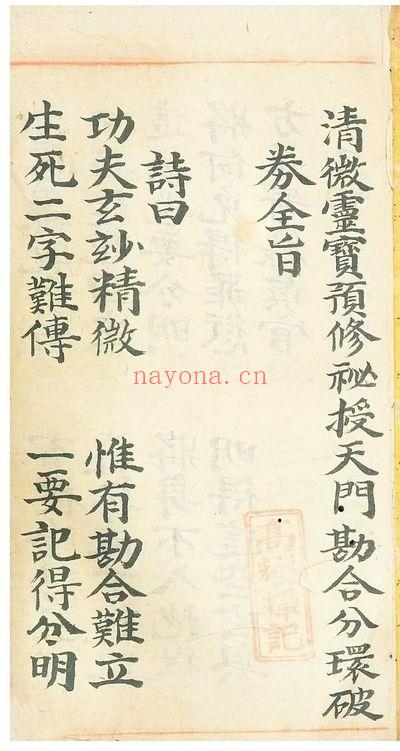 清微靈寶預修祕授天門勘合分環破
券全旨
詩曰
功夫玄玅精微 惟有勘合難立
生死二字難傳 一要記得分明
nayona.cn